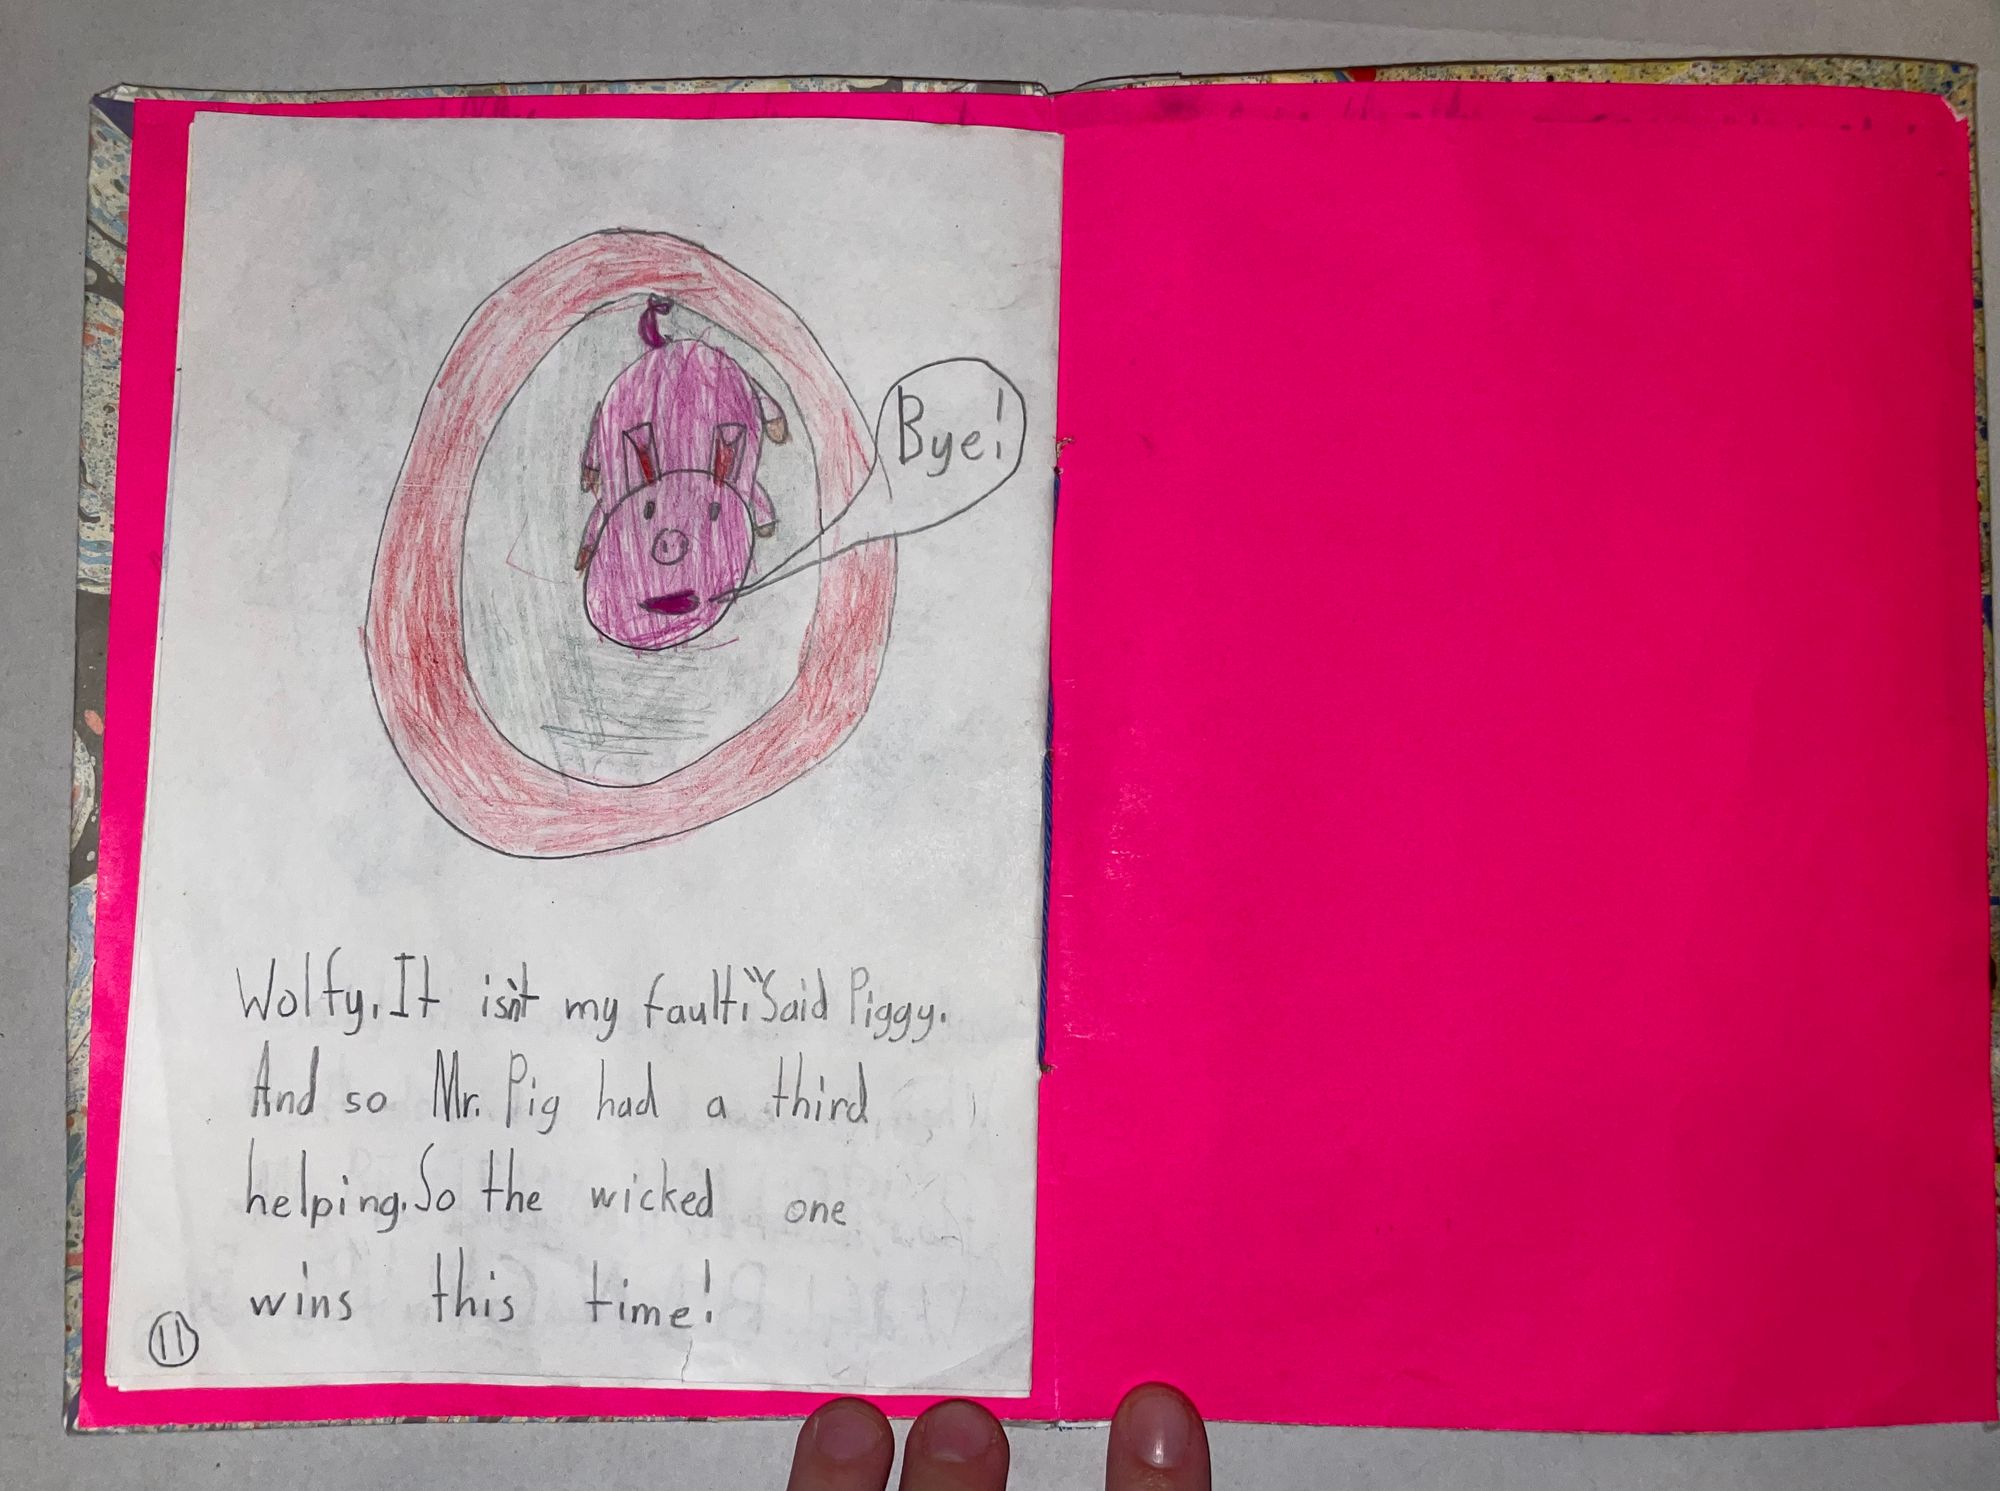 Bye!
Wolfy. It isn't my fault." Said Piggy.
And so Mr. Pig had a third
helping. So the wicked one
wins this time!
11